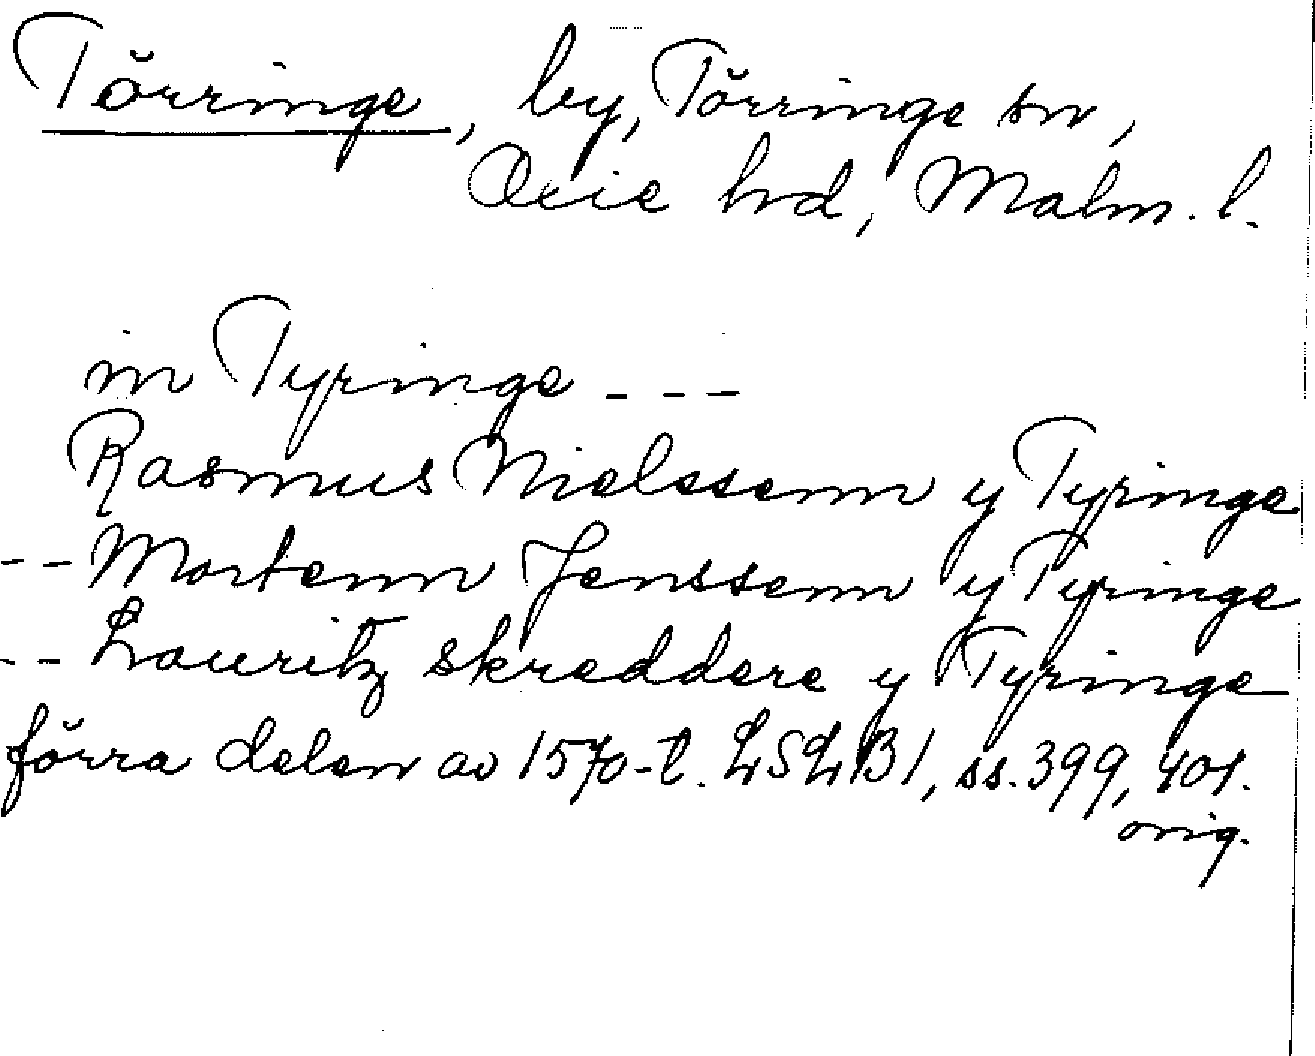 Törringe, by, Törringe sn,
Oxie hd, Malm. l.
in Tyringe - - -
Rasmus Nielssenn y Tyringe
- - Mortenn Jenssenn y Tyringe
- - Lauritz skreddere y Tyringe
förra delen av 1570-t. LSLB1, ss. 399, 401.
orig.